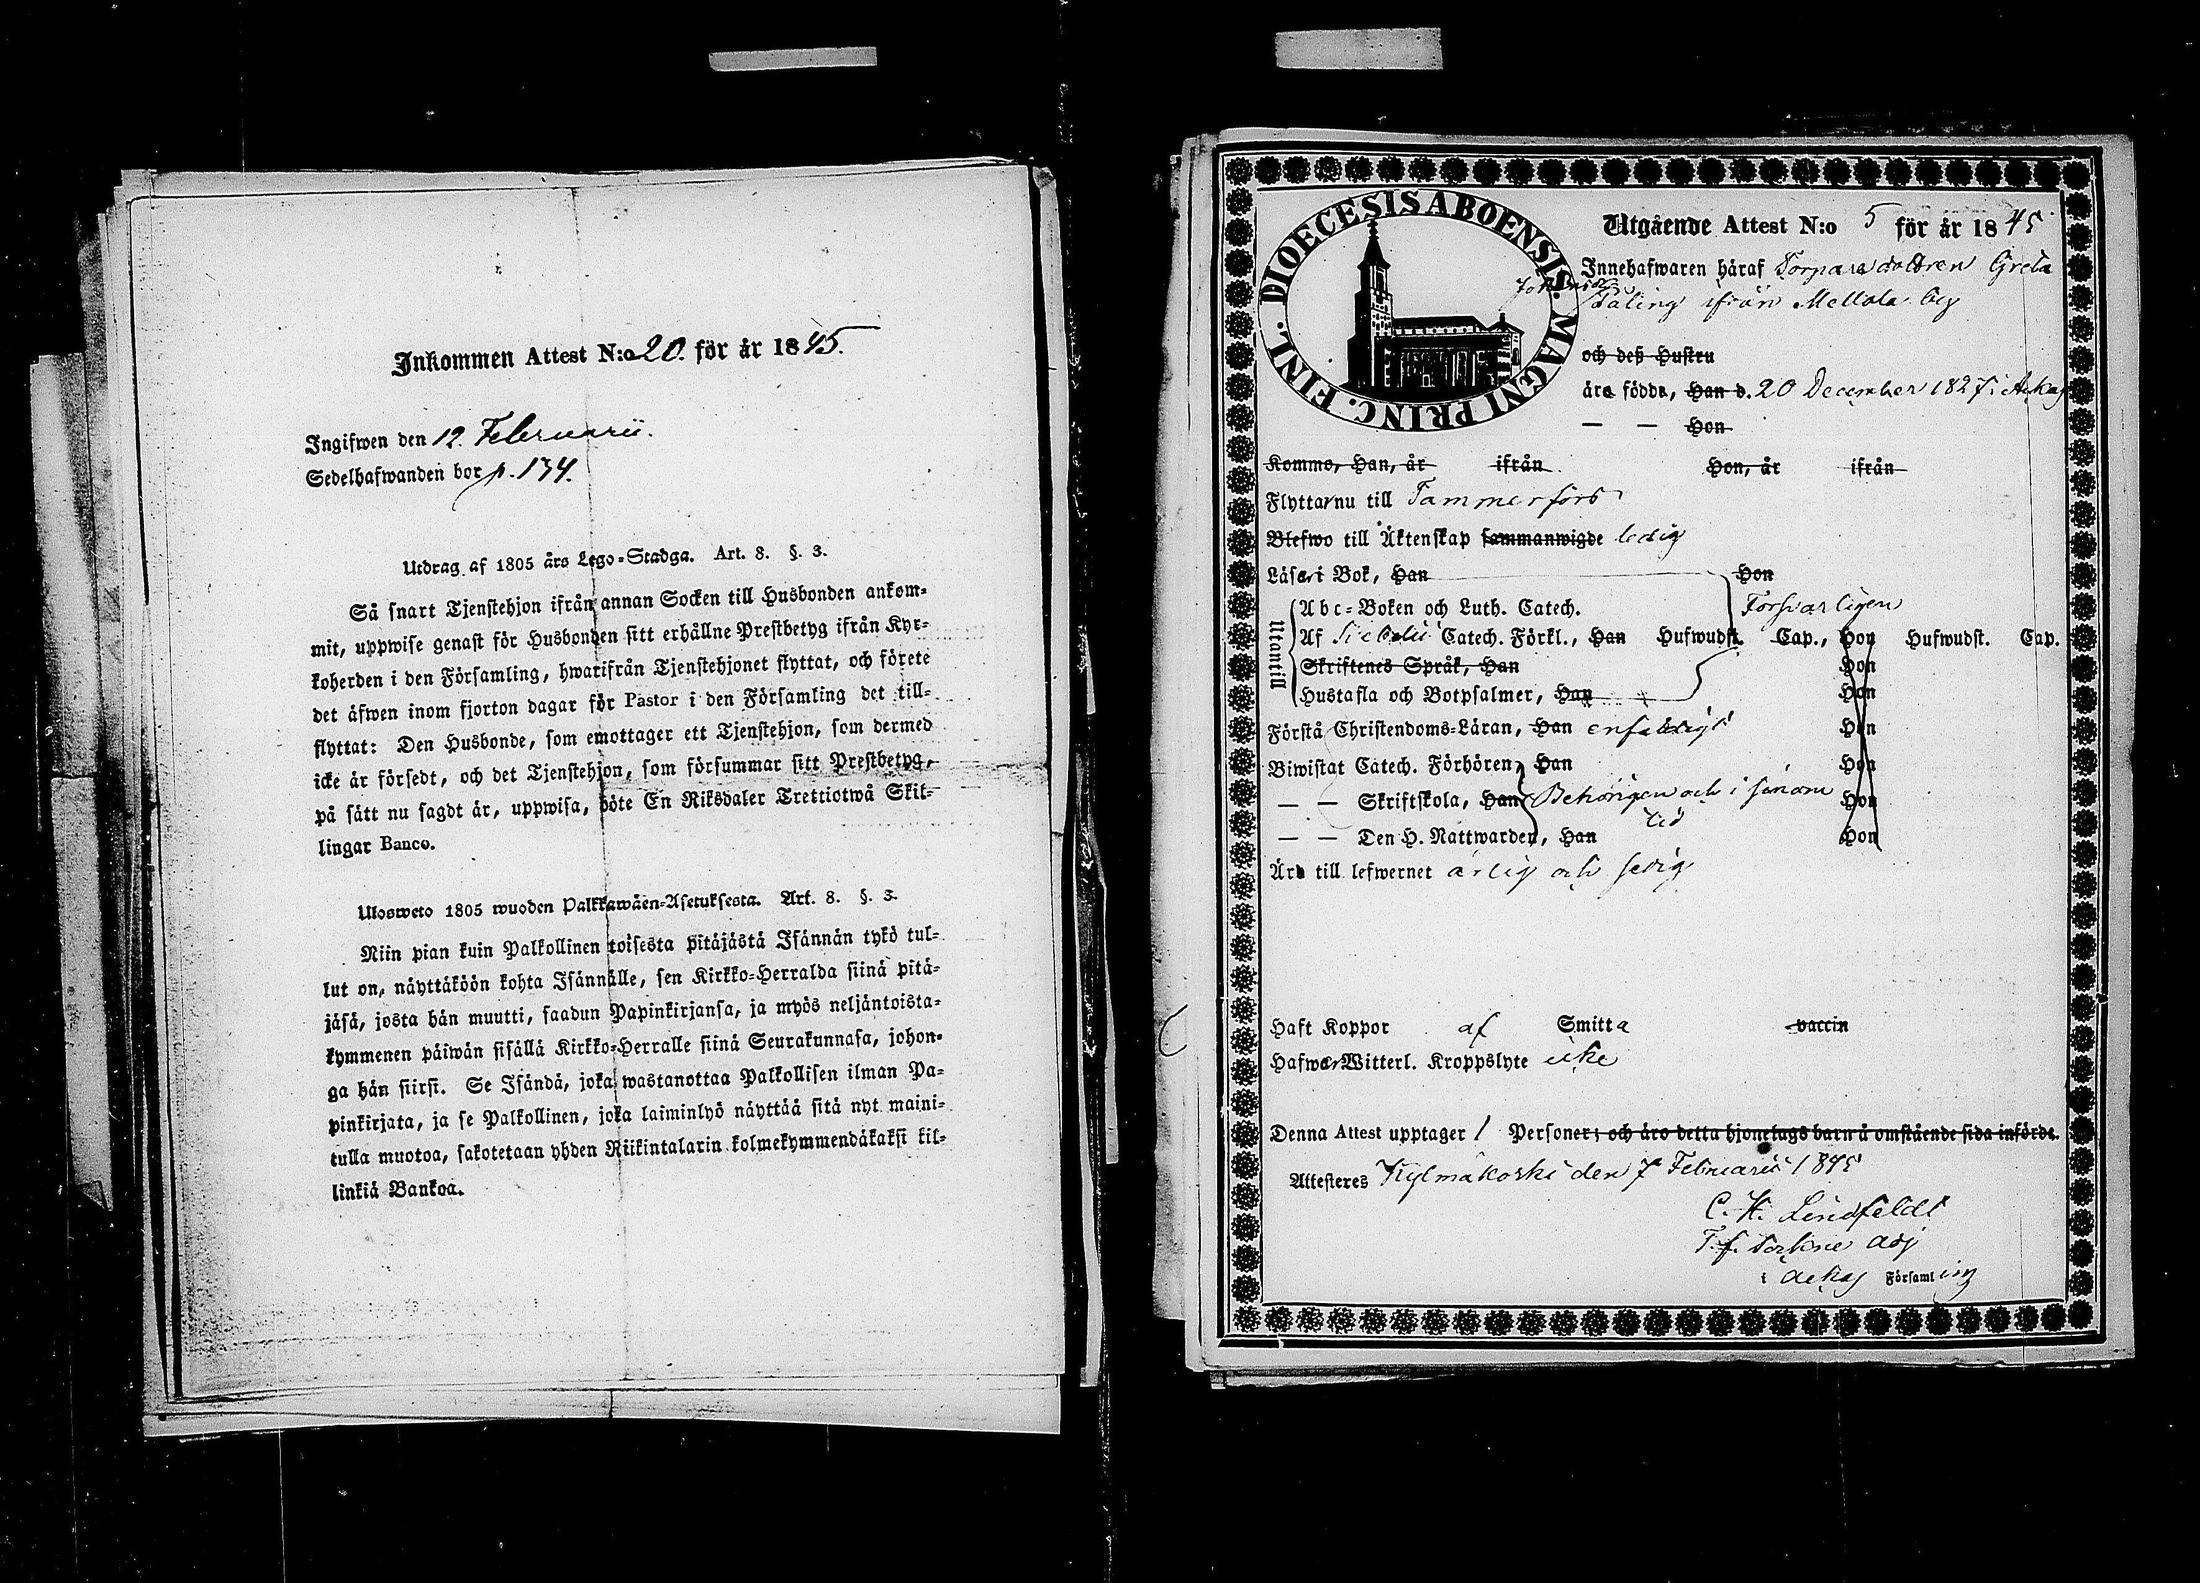 Inkommen Attest N:o 20. för år 1845.
Ingifwen den 12. Februarii.
Sedelhafwanden bor p. 134.
Utdrag af 1805 års Lego-Stadga. Art. 8. §. 3.
Så snart Tjenstehjon ifrån annan Socken till Husbonden ankom-
mit, uppwise genast för Husbonden sitt erhållne Prestbetyg ifrån Kyr-
koherden i den Församling, hwarifrån Tjenstehjonet flyttat, och förete
det äfwen inom fjorton dagar för Pastor i den Församling det till-
flyttat: Den Husbonde, som emottager ett Tjenstehjon, som dermed
icke är försedt, och det Tjenstehjon, som försummar sitt Prestbetyg,
på sätt nu sagdt är, uppwisa, böte En Riksdaler Trettiotwå Skil-
lingar Banco.
Ulosweto 1805 wuoden Palkkawäen-Asetuksesta. Art. 8. §. 3.
Niin pian kuin Palkollinen toisesta pitäjästä Isännän tykö tul-
lut on, näyttäköön kohta Isännälle, sen Kirkko-Herralda siinä pitä-
jäsä, josta hän muutti, saadun Papinkirjansa, ja myös neljäntoista-
kymmenen päiwän sisällä Kirkko-Herralle siinä Seurakunnasa, johon-
ga hän siirsi. Se Isändä, joka wastanottaa Palkollisen ilman Pa-
pinkirjata, ja se Palkollinen, joka laiminlyö näyttää sitä nyt maini-
tulla muotoa, sakotetaan yhden Riikintalarin kolmekymmendäkaksi kil-
linkiä Bankoa.
DIOECESIS ABOENSIS. MAGNI PRINC. FINL.
Utgående Attest N:o 5 för år 1845.
Innehafwaren häraf Torpare dottren Greta
ifrån Mellola by
och deß Hustru
äro födde, Han d. 20 December 1827 i Ackas
— — Hon
Kommo, Han, år ifrån Hon, år ifrån
Flyttar nu till Tammerfors
Blefwo till Äktenskap sammanwigde ledig
Läser i Bok, Han Hon
Utantill
Abc-Boken och Luth. Catech. Forsvarligen
Af Sirbelii Catech. Förkl., Han Hufwudst. Cap., Hon Hufwudst. Cap.
Skriftenes Språk, Han Hon
Hustafla och Botpsalmer, Han Hon
Förstå Christendoms-Läran, Han enfaldigt Hon
Biwistat Catech. Förhören, Han Hon
— — Skriftskola, Han Behörigen och i sinom Hon
tid
— — Den H. Nattwarden, Han Hon
Äro till lefwernet ärlig och sedig
Haft Koppor af Smitta vaccin
Hafwer Witterl. Kroppslyte icke
Denna Attest upptager 1 Personer; och äro detta hjonelags barn å omstående sida införde.
Attesteres Kylmäkoski den 7 Februarii 1845
C. H. Lindfeldt
T. f. adj
i Ackas Församling